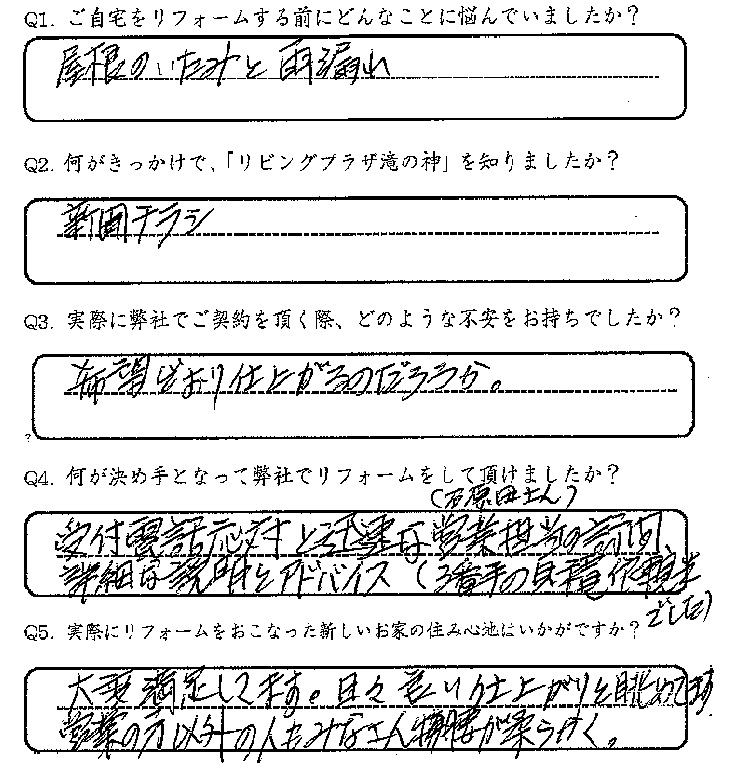 Q1. ご自宅をリフォームする前にどんなことに悩んでいましたか?
屋根のいたみと雨漏れ
Q2. 何がきっかけで、「リビングプラザ滝の神」を知りましたか?
新聞チラシ
Q3. 実際に弊社でご契約を頂く際、どのような不安をお持ちでしたか?
希望どおり仕上がるのだろうか。
Q4. 何が決め手となって弊社でリフォームをして頂けましたか?
(石原田さん)
受付電話応対と迅速な営業担当の訪問
詳細な説明とアドバイス (3番手の見積依頼先
でした)
Q5. 実際にリフォームをおこなった新しいお家の住み心地はいかがですか?
大変満足してます。日々良い仕上がりを眺めてます
営業の方以外の人もみなさん物腰が柔らかく。